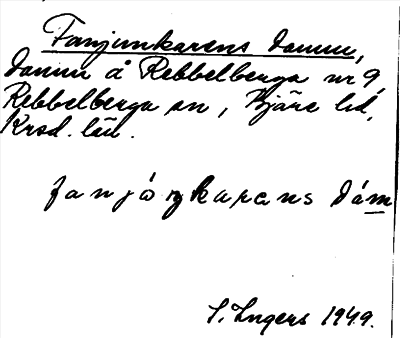 Fanjunkarens damm,
damm å Rebbelberga nr 9,
Rebbelberga sn, Bjäre hd,
Krsd. län.
fanjòŋkarəns dám
S. Ingers 1949.